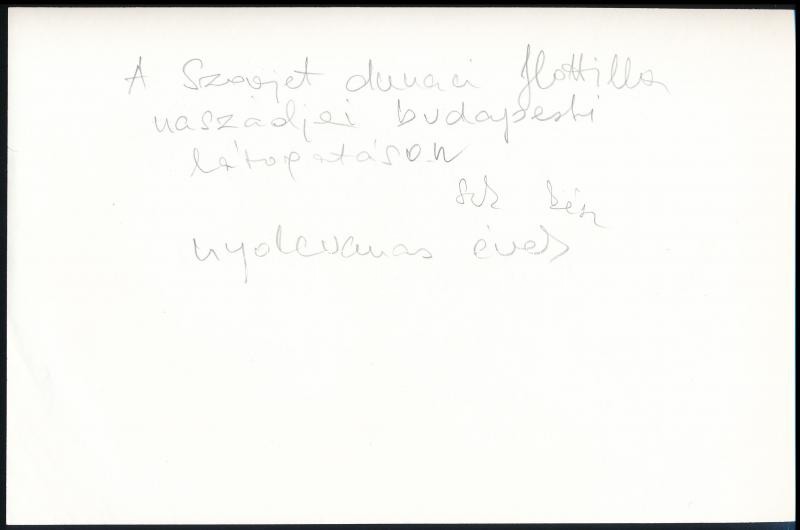 A Szovjet dunai flottilla
naszádjai budapesti
látogatáson
kész
nyolcvanas évek